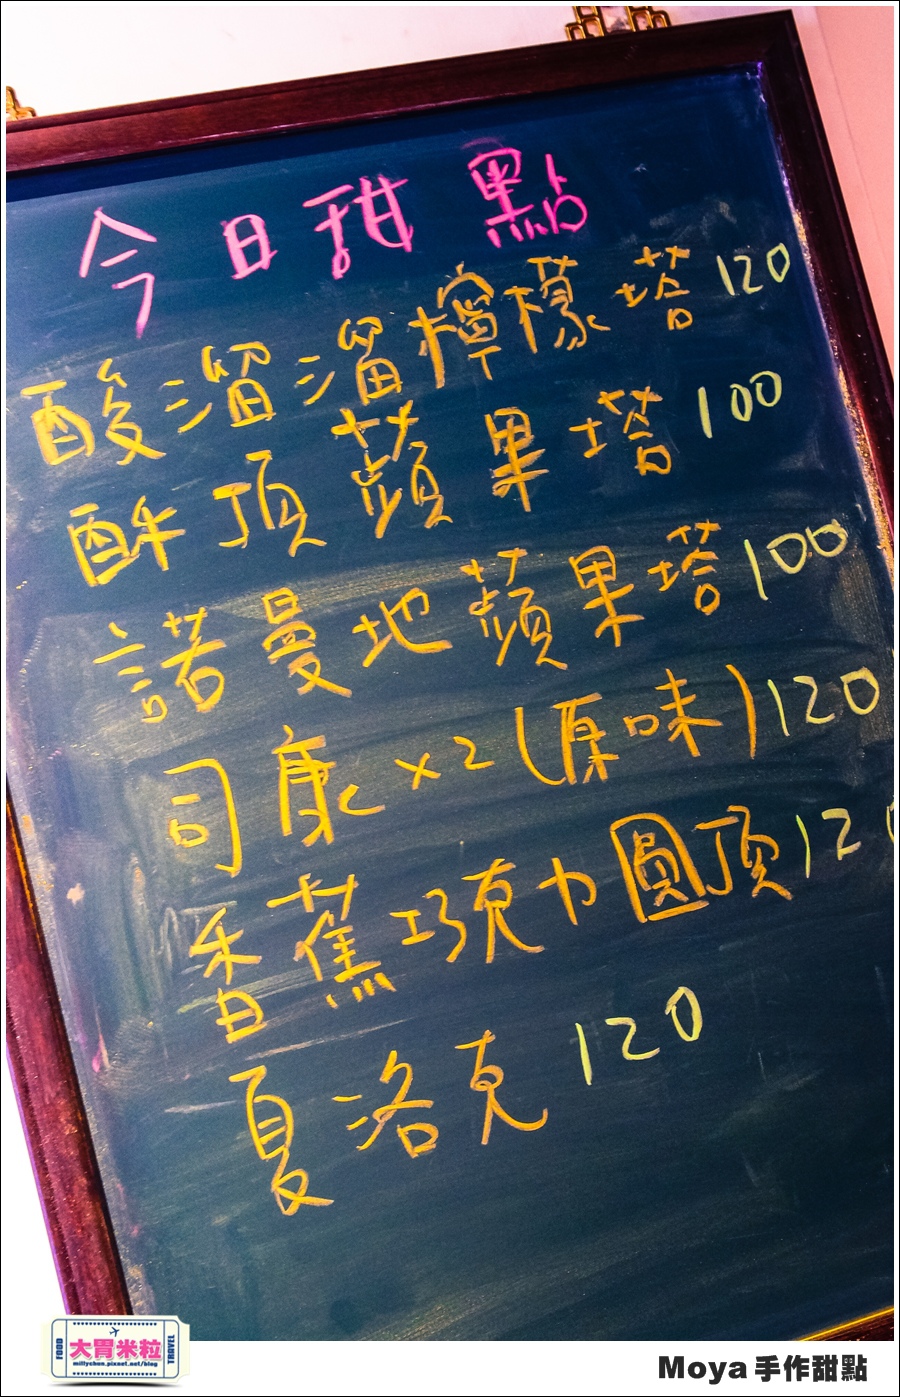 今日甜點
酸溜溜檸檬塔 120
酥頂蘋果塔 100
諾曼地蘋果塔 100
司康x2(原味) 120
香蕉巧克力圓頂 120
夏洛克 120
FOOD 大胃米粒 TRAVEL
millychun.pixnet.net/blog
Moya 手作甜點